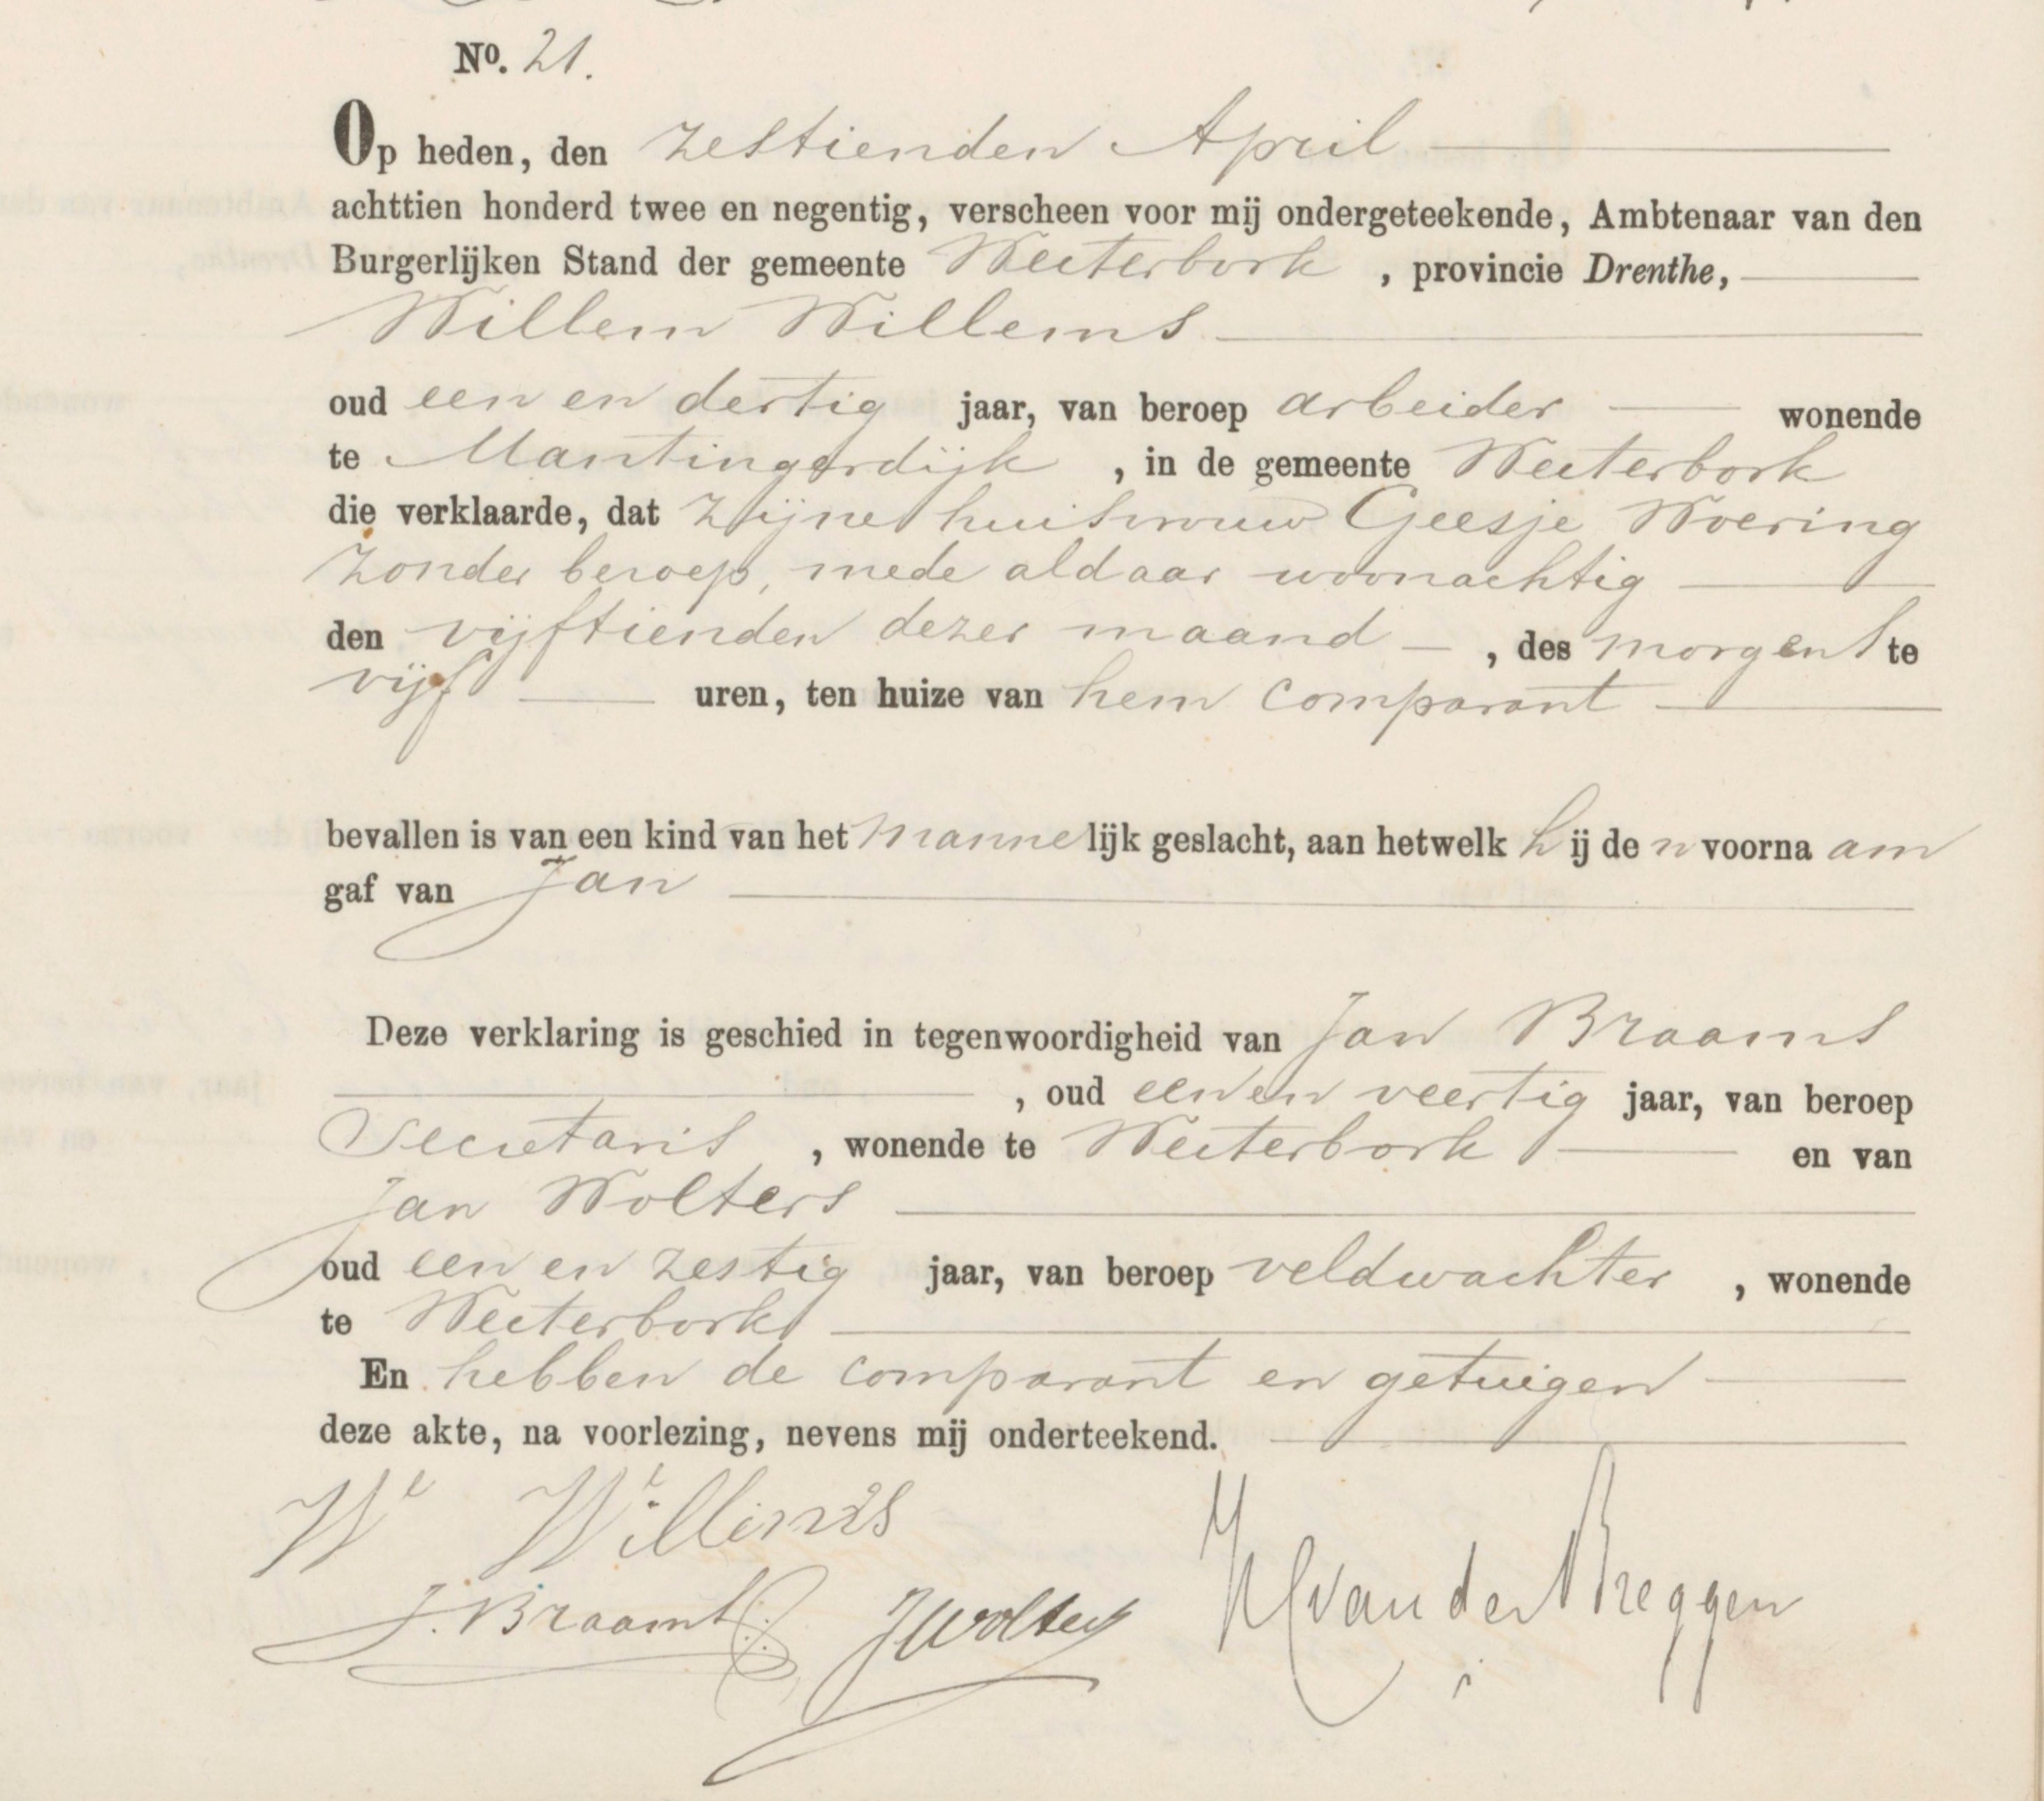 No. 21.
Op heden, den zestienden April
achttien honderd twee en negentig, verscheen voor mij ondergeteekende, Ambtenaar van den
Burgerlijken Stand der gemeente Westerbork, provincie Drenthe,
Willem Willems
oud een en dertig jaar, van beroep arbeider wonende
te Mantingerdijk, in de gemeente Westerbork
die verklaarde, dat zijne huisvrouw Geesje Woering
zonder beroep, mede aldaar woonachtig
den vijftienden dezer maand, des morgens te
vijf uren, ten huize van hem comparant
bevallen is van een kind van het mannelijk geslacht, aan hetwelk hij den voornaam
gaf van Jan
Deze verklaring is geschied in tegenwoordigheid van Jan Braams
, oud een en veertig jaar, van beroep
Secretaris, wonende te Westerbork en van
Jan Wolters
oud een en zestig jaar, van beroep veldwachter, wonende
te Westerbork
En hebben de comparant en getuigen
deze akte, na voorlezing, nevens mij onderteekend.
W Willims
J. Braams JWolters van der Breggen